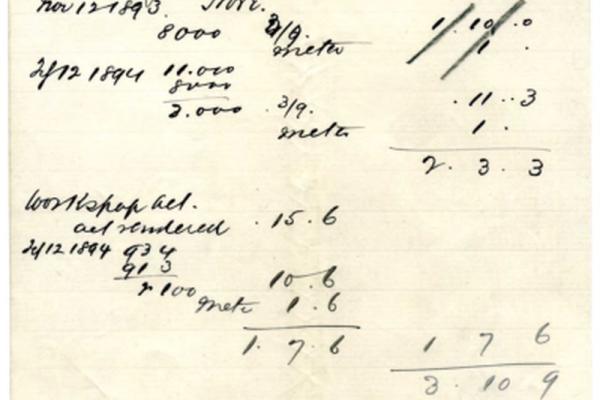 Nov 12 1893.
8000 3/9. 1 . 10 . 0
meter 1 .
12 1894 11.000
8000
3.000 . 3/9. . 11 .. 3
meter 1 .
2 . 3 . 3
Workshop act.
act rendered . 15 . 6
12 1894 934
913
2100 10 . 6
1 . 6
1 . 7 . 6 1 7 6
3 . 10 9